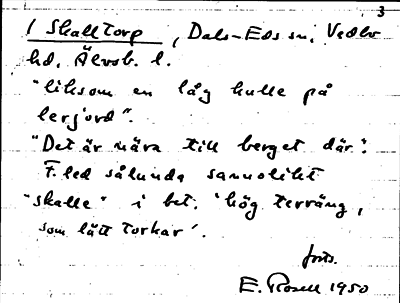 3
/ Skalltorp, Dals-Eds sn, Vedbo
hd. Älvsb. l.
"liksom en låg kulle på
lerjord".
"Det är nära till berget där".
F.led sålunda sannolikt
"skalle" i bet. 'hög terräng,
som lätt torkar'.
forts.
E. Rosell 1950